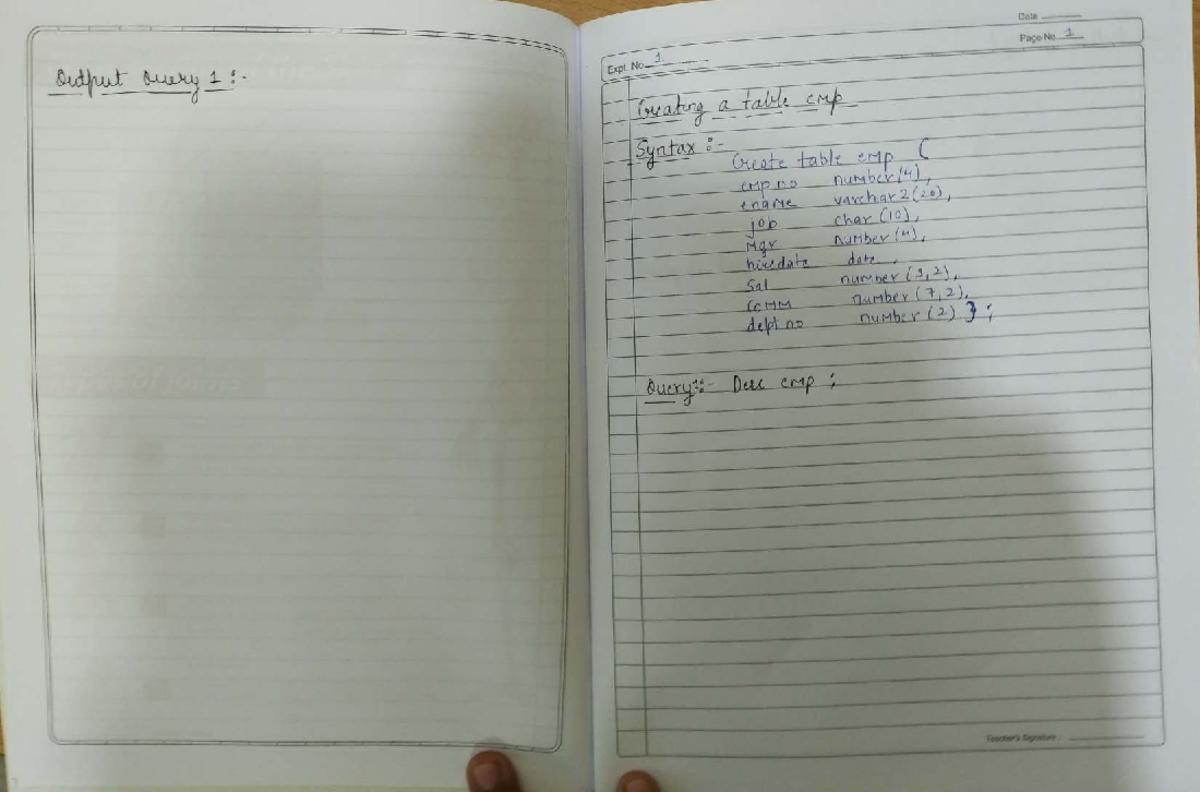 Output Query 1 :-
Date
Page No. 1
Expt. No. 1
Creating a table emp
Syntax :-
Create table emp (
emp no number(4),
ename varchar2(20),
job char(10),
Mgr number(4),
hiredate date,
Sal number(3,2),
COMM number(7,2),
dept no number(2) } ;
Query :- Desc emp ;
Teacher's Signature :